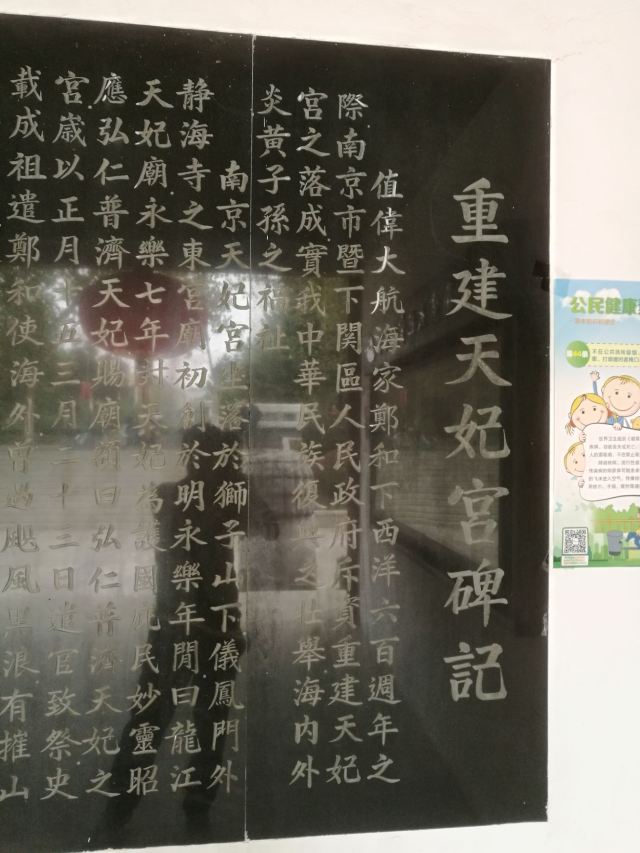 重建天妃宮碑記
值偉大航海家鄭和下西洋六百週年之
際南京市暨下關區人民政府斥資重建天妃
宮之落成實我中華民族復興之壯舉海内外
炎黃子孫之福祉
南京天妃宮坐落於獅子山下儀鳳門外
静海寺之東宮廟初創於明永樂年閒曰龍江
天妃廟永樂七年封天妃為護國庇民妙靈昭
應弘仁普濟天妃賜廟額曰弘仁普濟天妃之
宮歲以正月十五三月二十三日遣官致祭史
載成祖遣鄭和使海外曾遇颶風黑浪有摧山
公民健康